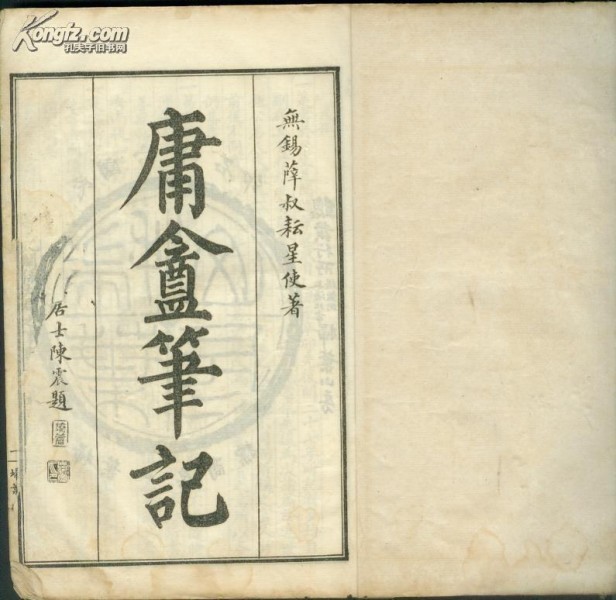 Kongfz.com
孔夫子旧书网
無錫薛叔耘星使著
庸盦筆記
居士陳震題